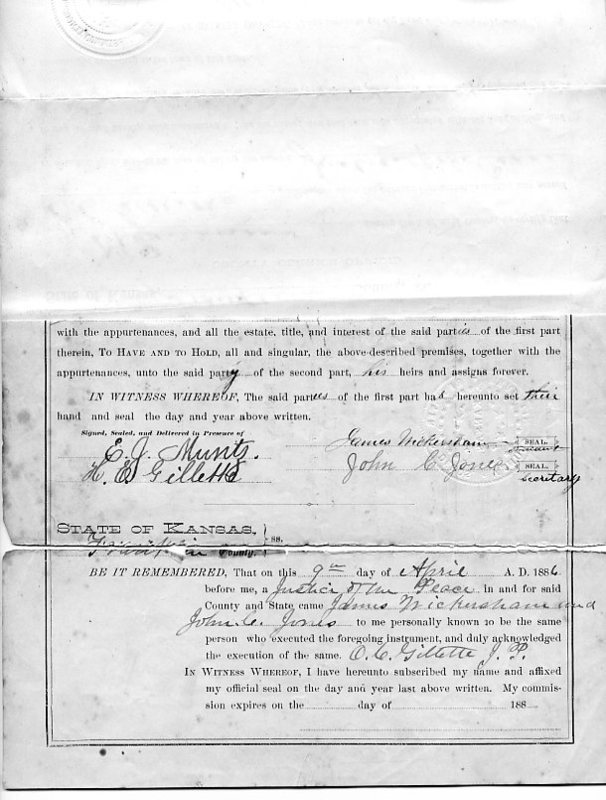 with the appurtenances, and all the estate, title, and interest of the said parties of the first part
therein, TO HAVE AND TO HOLD, all and singular, the above-described premises, together with the
appurtenances, unto the said party of the second part, his heirs and assigns forever.
IN WITNESS WHEREOF, The said parties of the first part had hereunto set their
hand and seal the day and year above written.
Signed, Sealed, and Delivered in Presence of
E. J. Muntz. James Wickersham SEAL.
H. E. Gillette John C. Jones SEAL.
Secretary
STATE OF KANSAS,
Franklin County. ss.
BE IT REMEMBERED, That on this 9th day of April A. D. 1886
before me, a Justice of the Peace in and for said
County and State came James Wickersham and
John C. Jones to me personally known to be the same
person who executed the foregoing instrument, and duly acknowledged
the execution of the same. O. C. Gillette J. P.
IN WITNESS WHEREOF, I have hereunto subscribed my name and affixed
my official seal on the day and year last above written. My commis-
sion expires on the day of 188